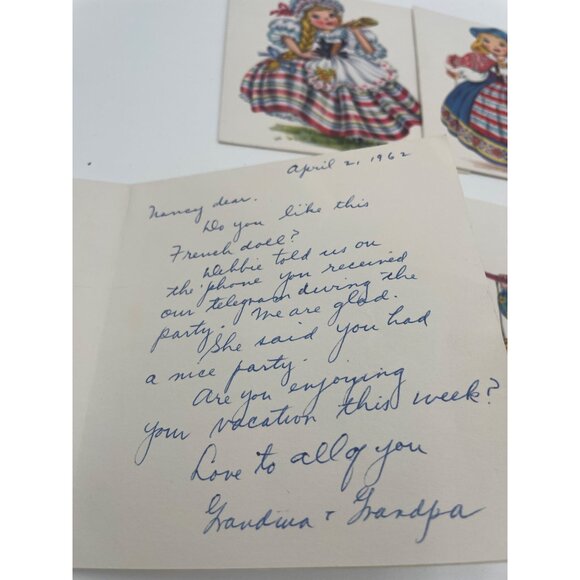 April 2, 1962
Nancy dear.
Do you like this
French doll?
Debbie told us on
the 'phone you received
our telegram during the
party. We are glad.
She said you had
a nice party.
Are you enjoying
your vacation this week?
Love to all of you
Grandma & Grandpa